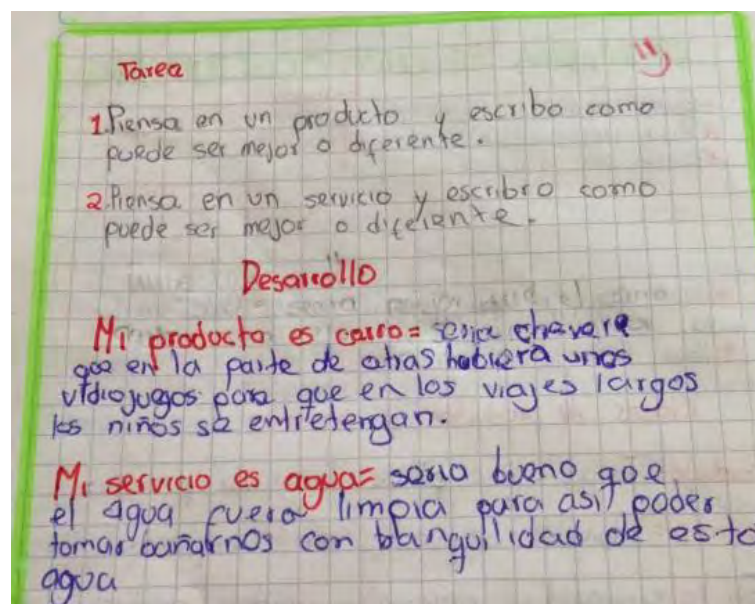 Tarea
1. Piensa en un producto y escribo como
puede ser mejor o diferente.
2. Piensa en un servicio y escribro como
puede ser mejor o diferente.
Desarrollo
Mi producto es carro= seria chevare
que en la parte de atras hubiera unos
vidiojugos para que en los viajes largos
los niños se entretengan.
Mi servicio es agua= serio bueno que
el agua fuera limpia para asi poder
tomar bañarnos con tranquilidad de esta
agua